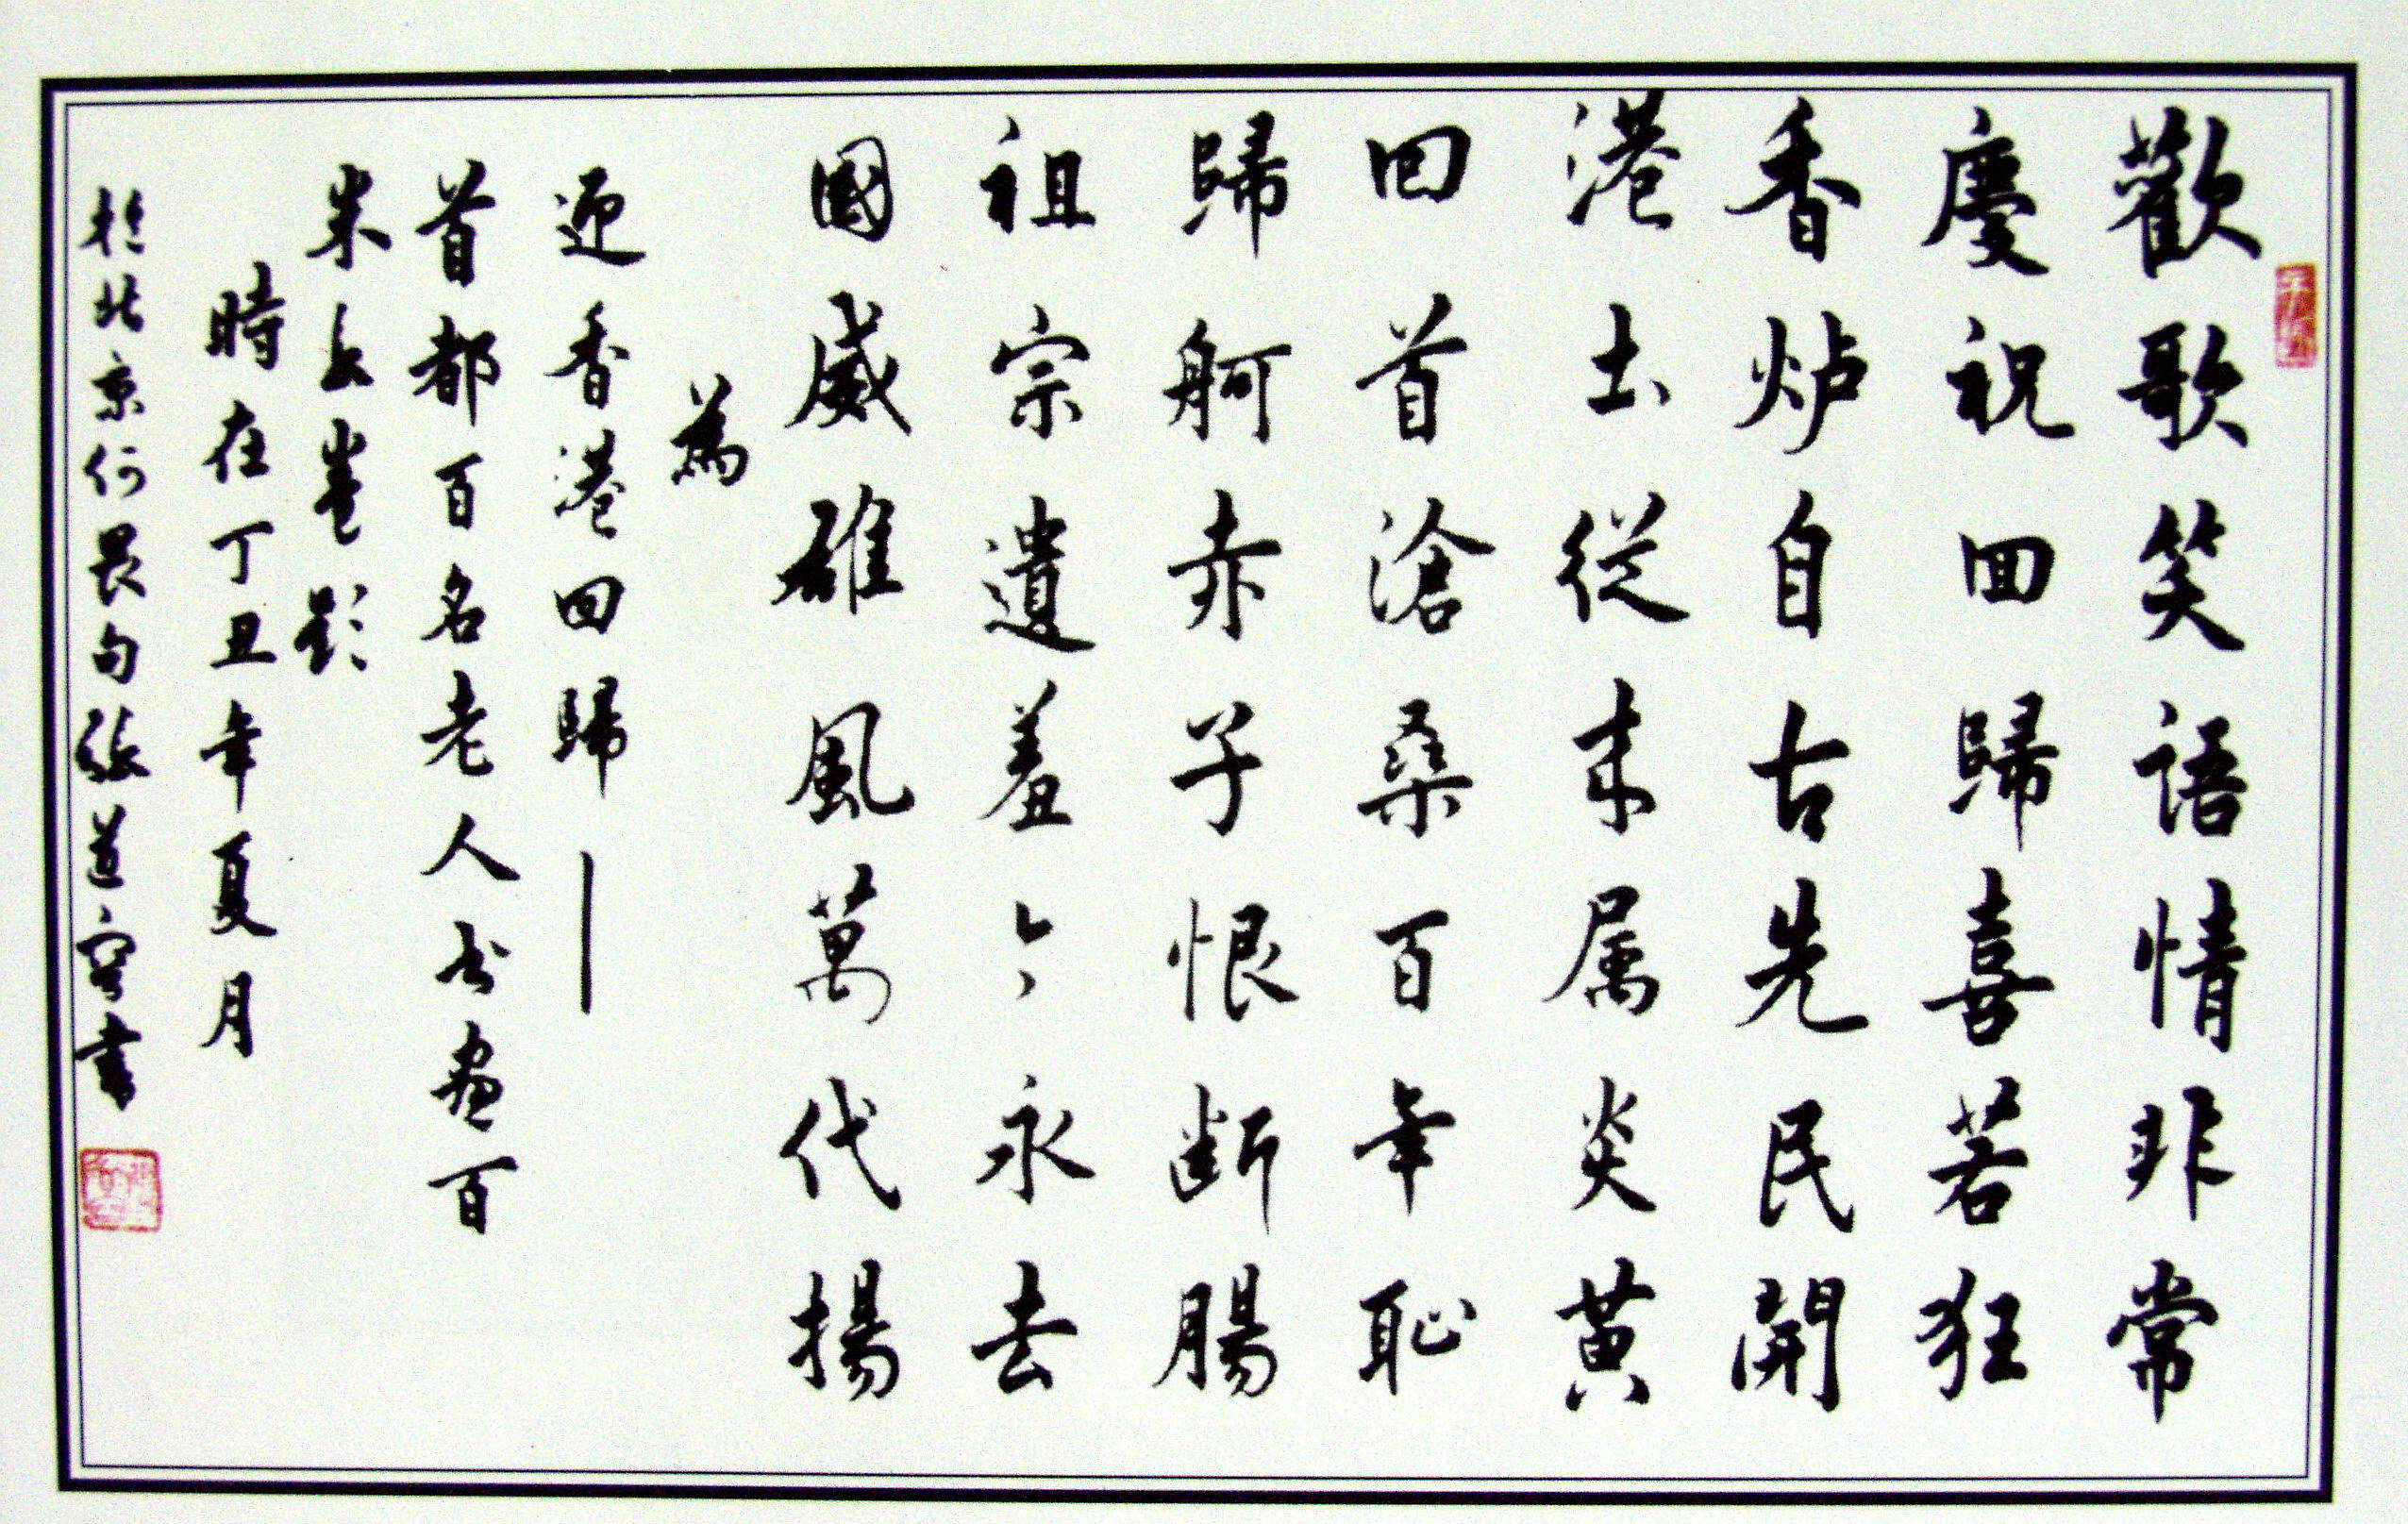 歡歌笑語情非常
慶祝回歸喜若狂
香炉自古先民開
港土從来属炎黄
回首滄桑百年恥
歸舸赤子恨断腸
祖宗遺羞今永去
國威雄風萬代揚
為
迎香港回歸—
首都百名老人书畫百
米长卷题
時在丁丑年夏月
於北京何畏句張道書